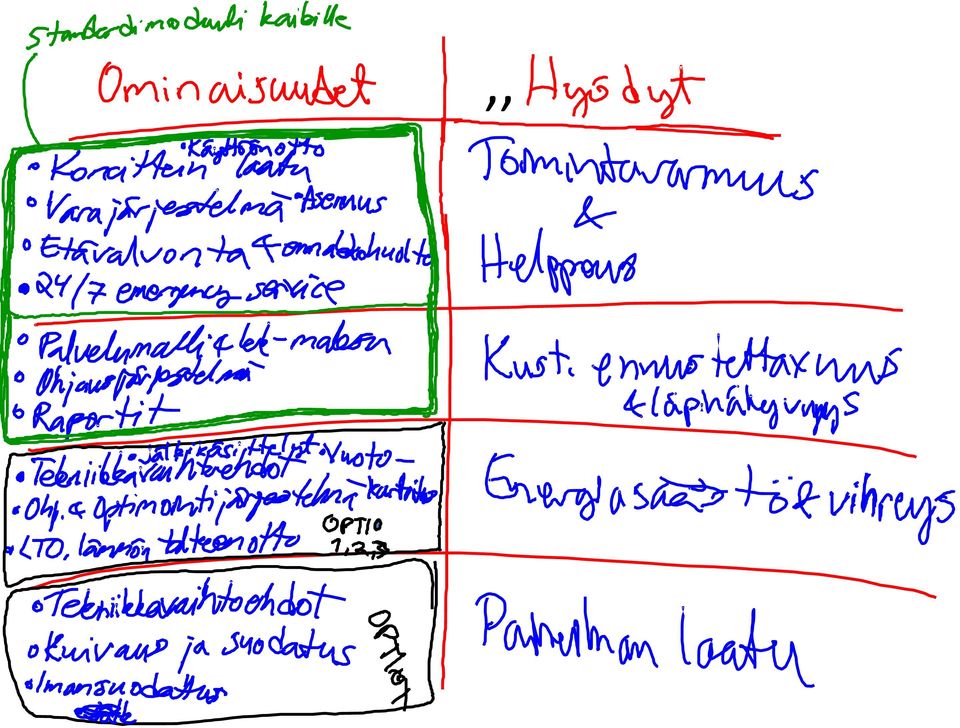 Standardimoduuli kaikille
Ominaisuudet
• Koneitten laatu • Käyttöönotto
• Varajärjestelmä • Asennus
• Etävalvonta & ennakkohuolto
• 24/7 emergency service
• Palvelumalli & kk-maksu
• Ohjausjärjestelmä
• Raportit
• Tekniikkavaihtoehdot • Jälkikäsittelyt • Vuoto-
• Ohj. & Optimointijärjestelmä kartoitus
• LTO, lämmön talteenotto
OPTIO
1,2,3
• Tekniikkavaihtoehdot
• Kuivaus ja suodatus
• Imansuodatus
OPTIOT
,, Hyödyt
Toimintavarmuus
&
Helppous
Kust. ennustettavuus
& läpinäkyvyys
Energiasäästö & vihreys
Paineilman laatu